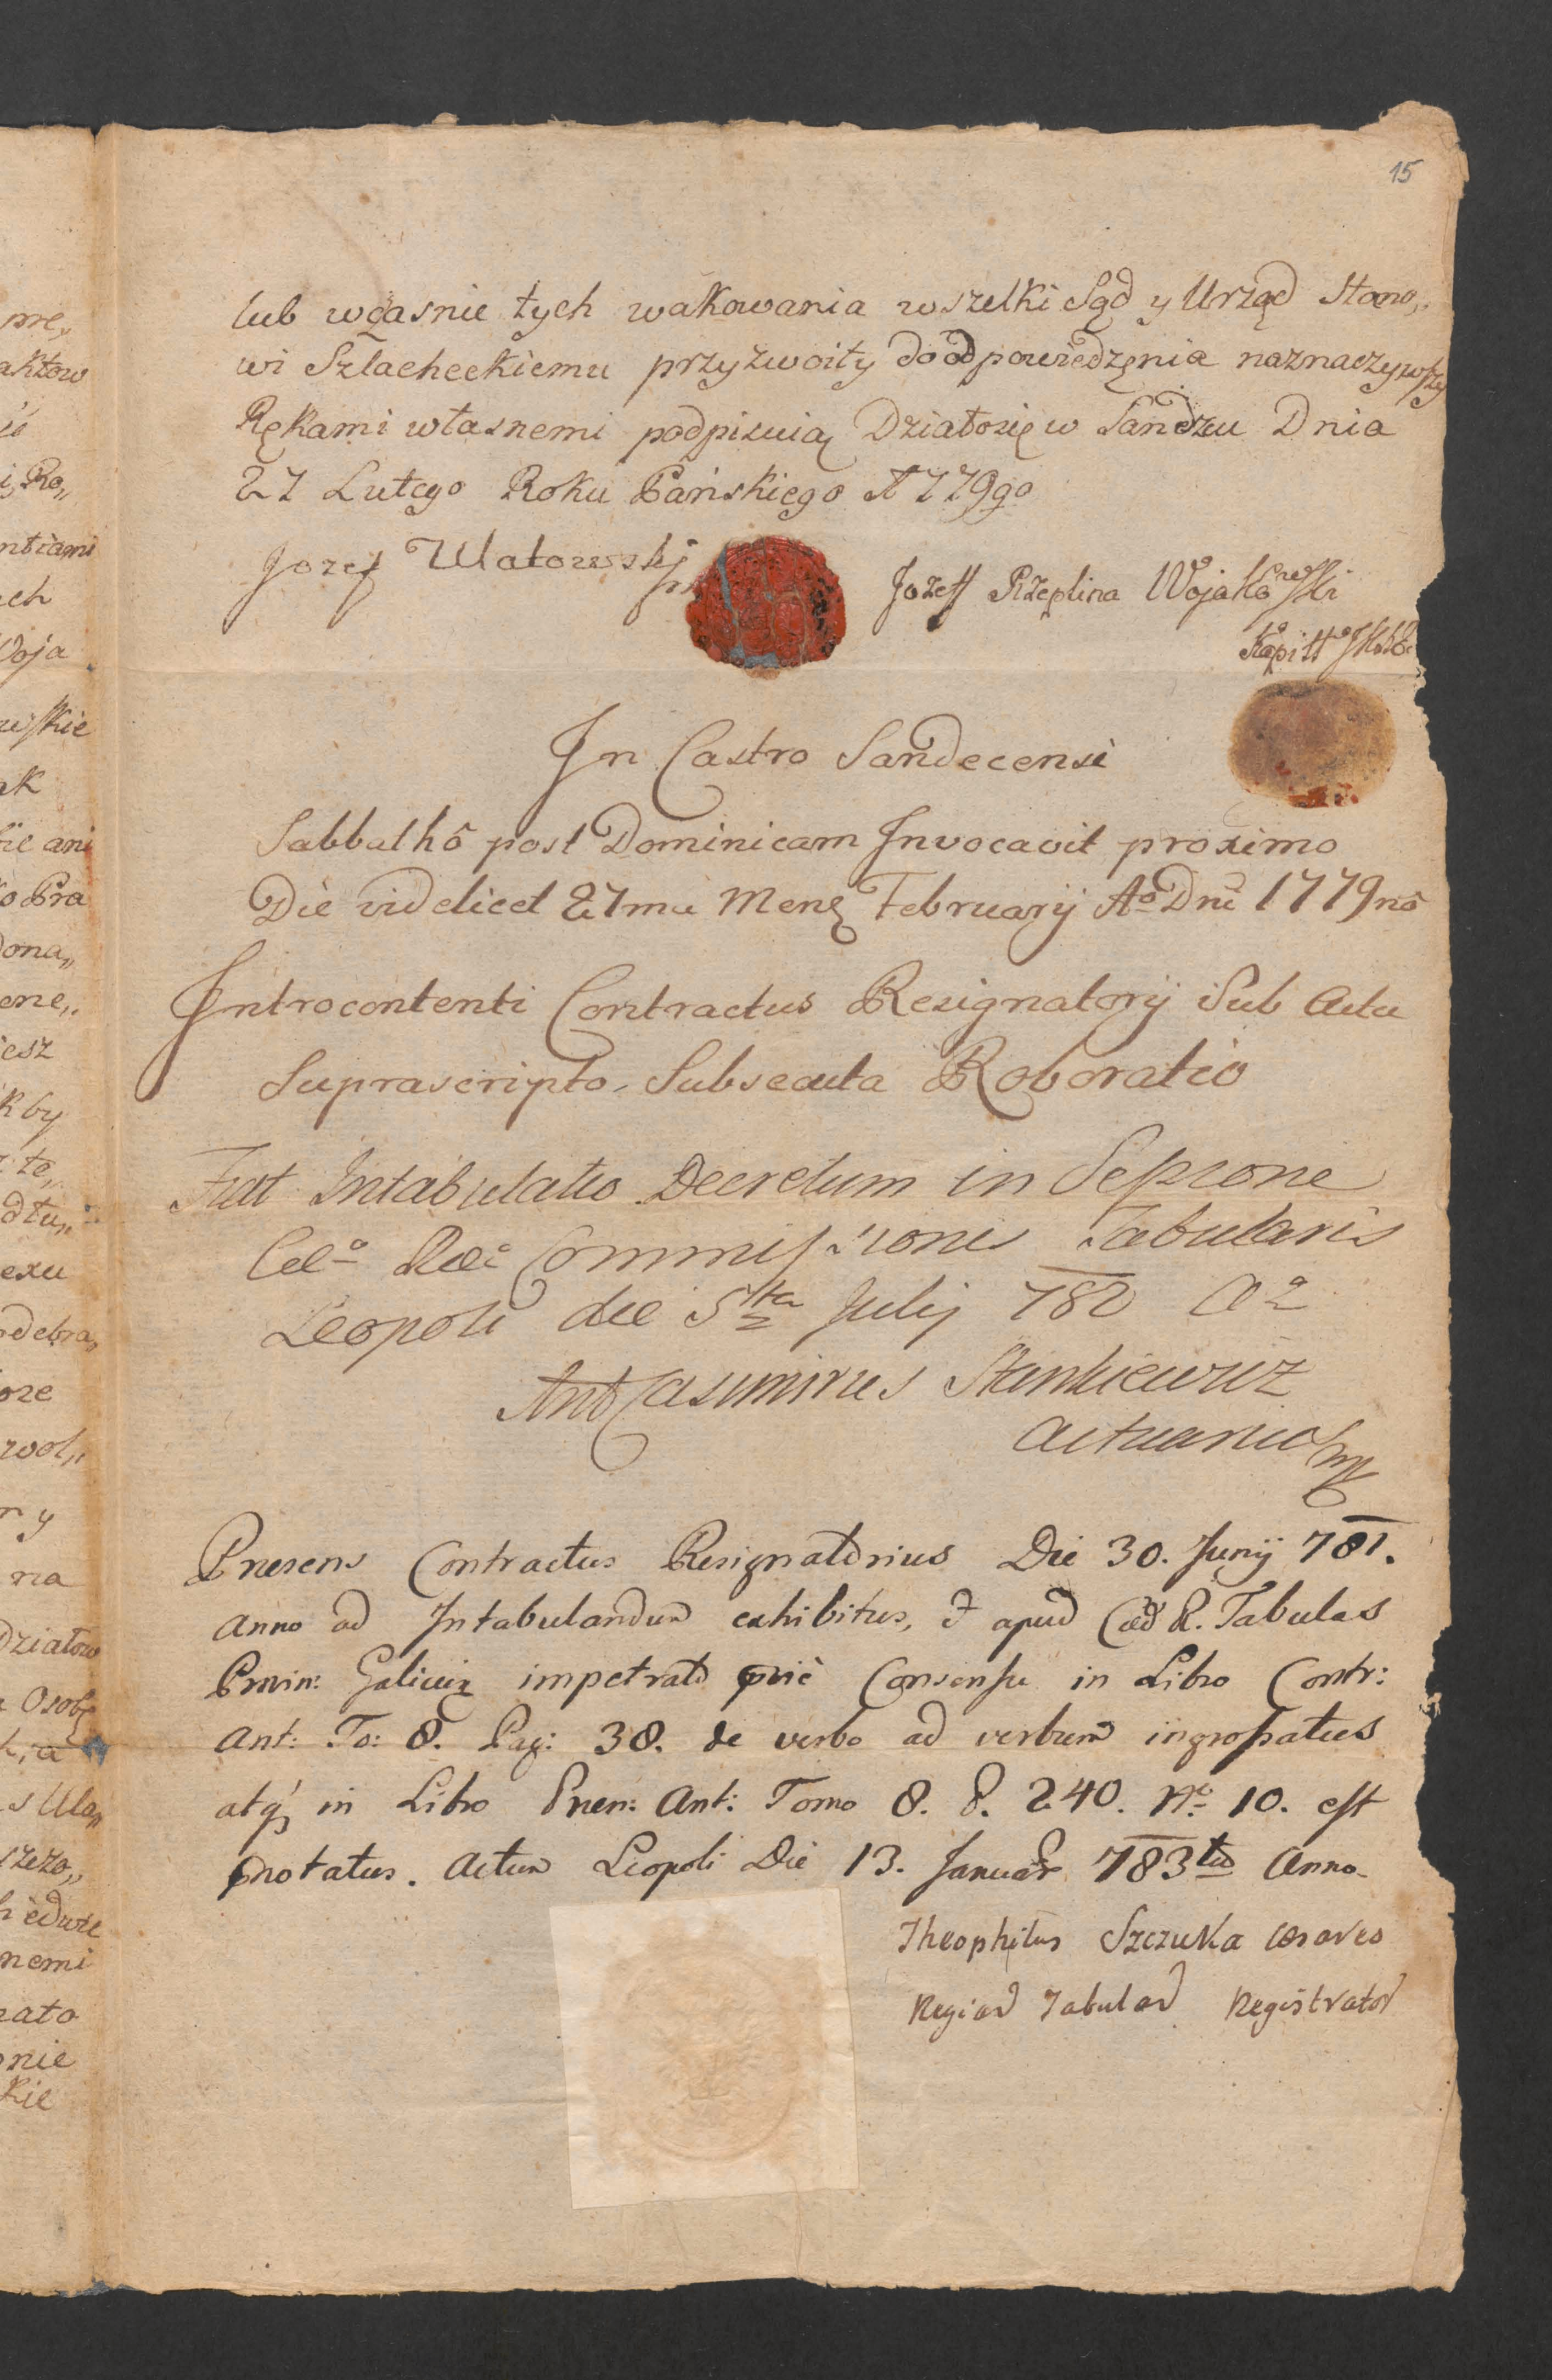 15
lub wczasnie tych wakowania wszelki Sąd y Urząd Stano,,
wi Szlacheckiemu przyzwoity do odpowiedzęnia naznaczywszy
Rękami własnemi podpisuią Działosię w Sandzu Dnia
27 Lutego Roku Pańskiego 1779go
Jozef Ulatowski
Jozeff Rzeplina Wojakowski
In Castro Sandecensi
Sabbathô post Dominicam Invocavit proximo
Die videlicet 27ma Mens Februarij Ao Dni 1779nô
Introcontenti Contractus Resignatorij Sub Actu
Suprascripto Subsecuta Roboratio
Fiat Intabulatio Decretum in Sessione
Commissionis Tabularis
Leopoli die 5ta Julij 782 Ao
Ant Casimirus Stankiewicz
Actuarius mp
Præsens Contractus Resignatorius Die 30. Junij 781.
Anno ad Intabulandum exhibitus, et apud Cæs R. Tabulas
Provin: Galiciæ impetrato Consensu in Libro Contr:
Ant: To: 8. Pag: 38. de verbo ad verbum ingrossatus
atq; in Libro Ant: Tomo 8. P. 240. No 10. est
notatus. Actum Leopoli Die 13. Januar 783tio Anno
Theophilus Szczuka Cesareo
Regiar Tabular Registrator
pre,,
aktow
i, Ro,,
ntiami
ech
Woja
wskie
ak
ani
ko Pra
dona,,
ene,,
iesz
kby
te,,
dtu,,
exu
odebra,,
oze
wol,,
r y
na
Działow
Osoby
s Ula,,
nemi
zato
nie
kie